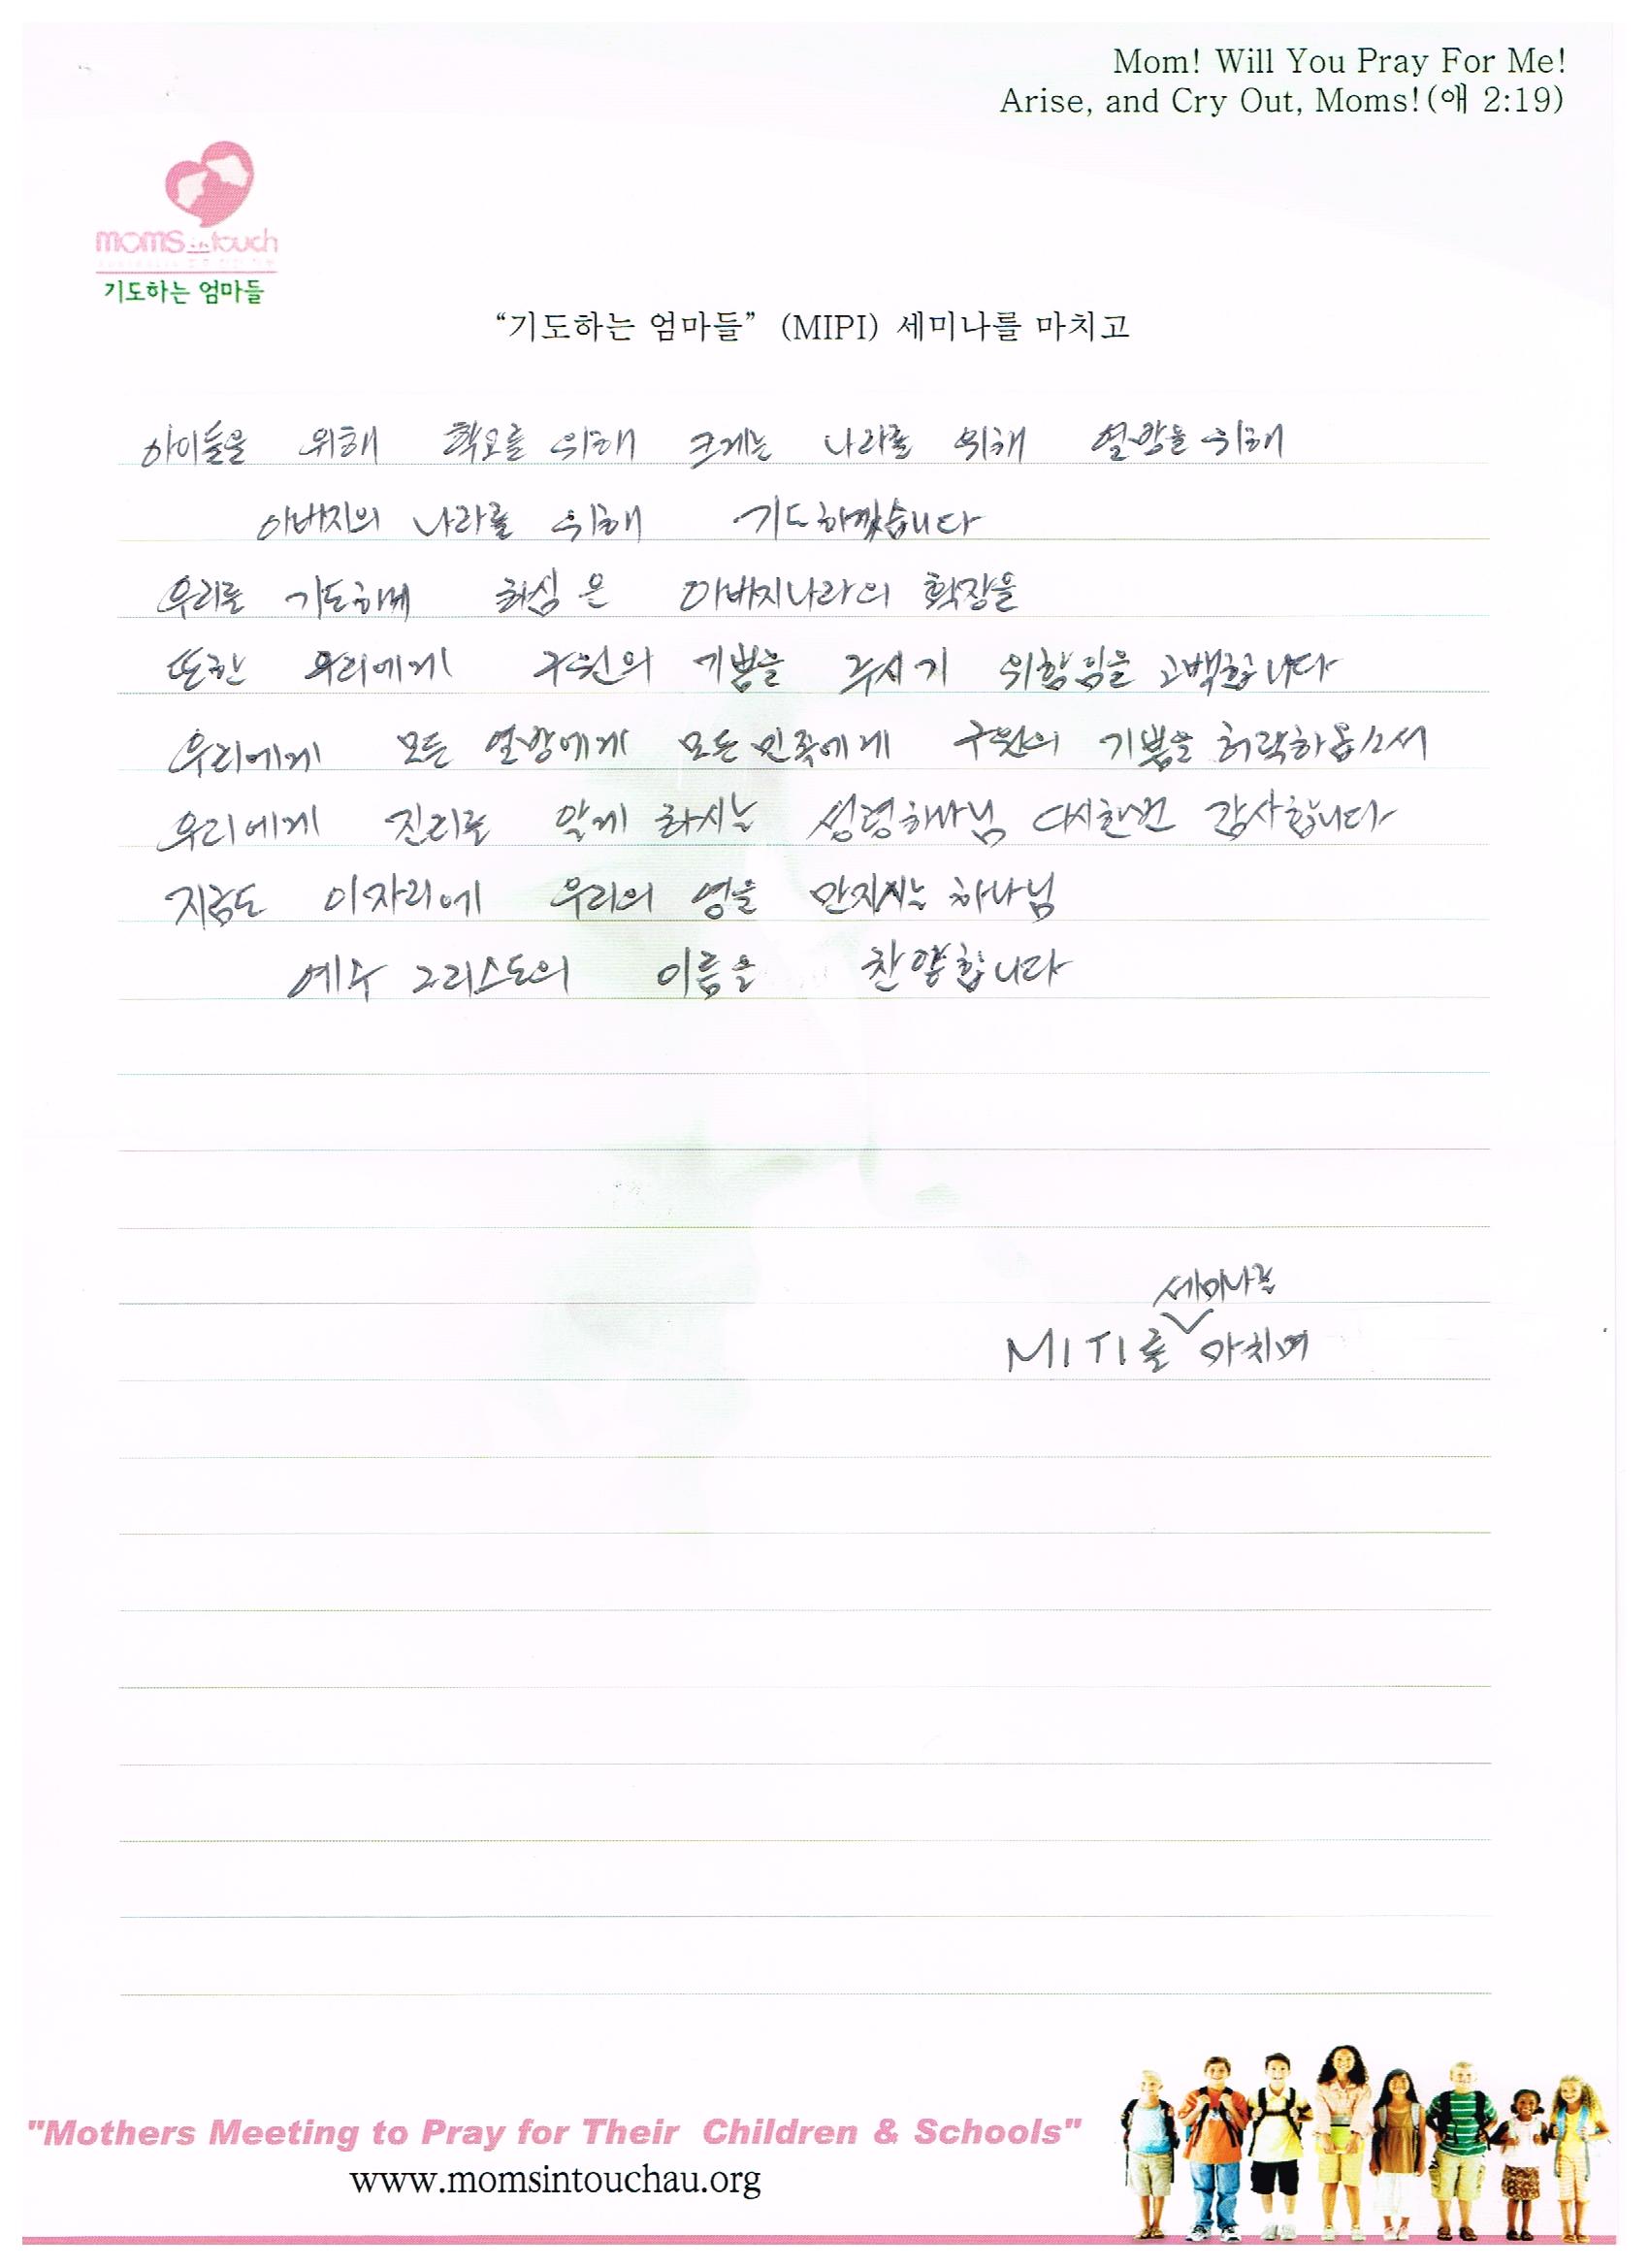 Mom! Will You Pray For Me!
Arise, and Cry Out, Moms!(애 2:19)
moms in touch
기도하는 엄마들
“기도하는 엄마들” (MIPI) 세미나를 마치고
아이들을 위해 학교를 위해 크게는 나라를 위해 열방을 위해
아버지의 나라를 위해 기도하겠습니다
우리를 기도하게 하심은 아버지나라의 확장을
또한 우리에게 구원의 기쁨을 주시기 위함임을 고백합니다
우리에게 모든 열방에게 모든 민족에게 구원의 기쁨을 허락하옵소서
우리에게 진리를 알게 하시는 성령하나님 다시한번 감사합니다
지금도 이자리에 우리의 영을 만지시는 하나님
예수 그리스도의 이름을 찬양합니다
세미나를
MITI를 마치며
"Mothers Meeting to Pray for Their Children & Schools"
www.momsintouchau.org